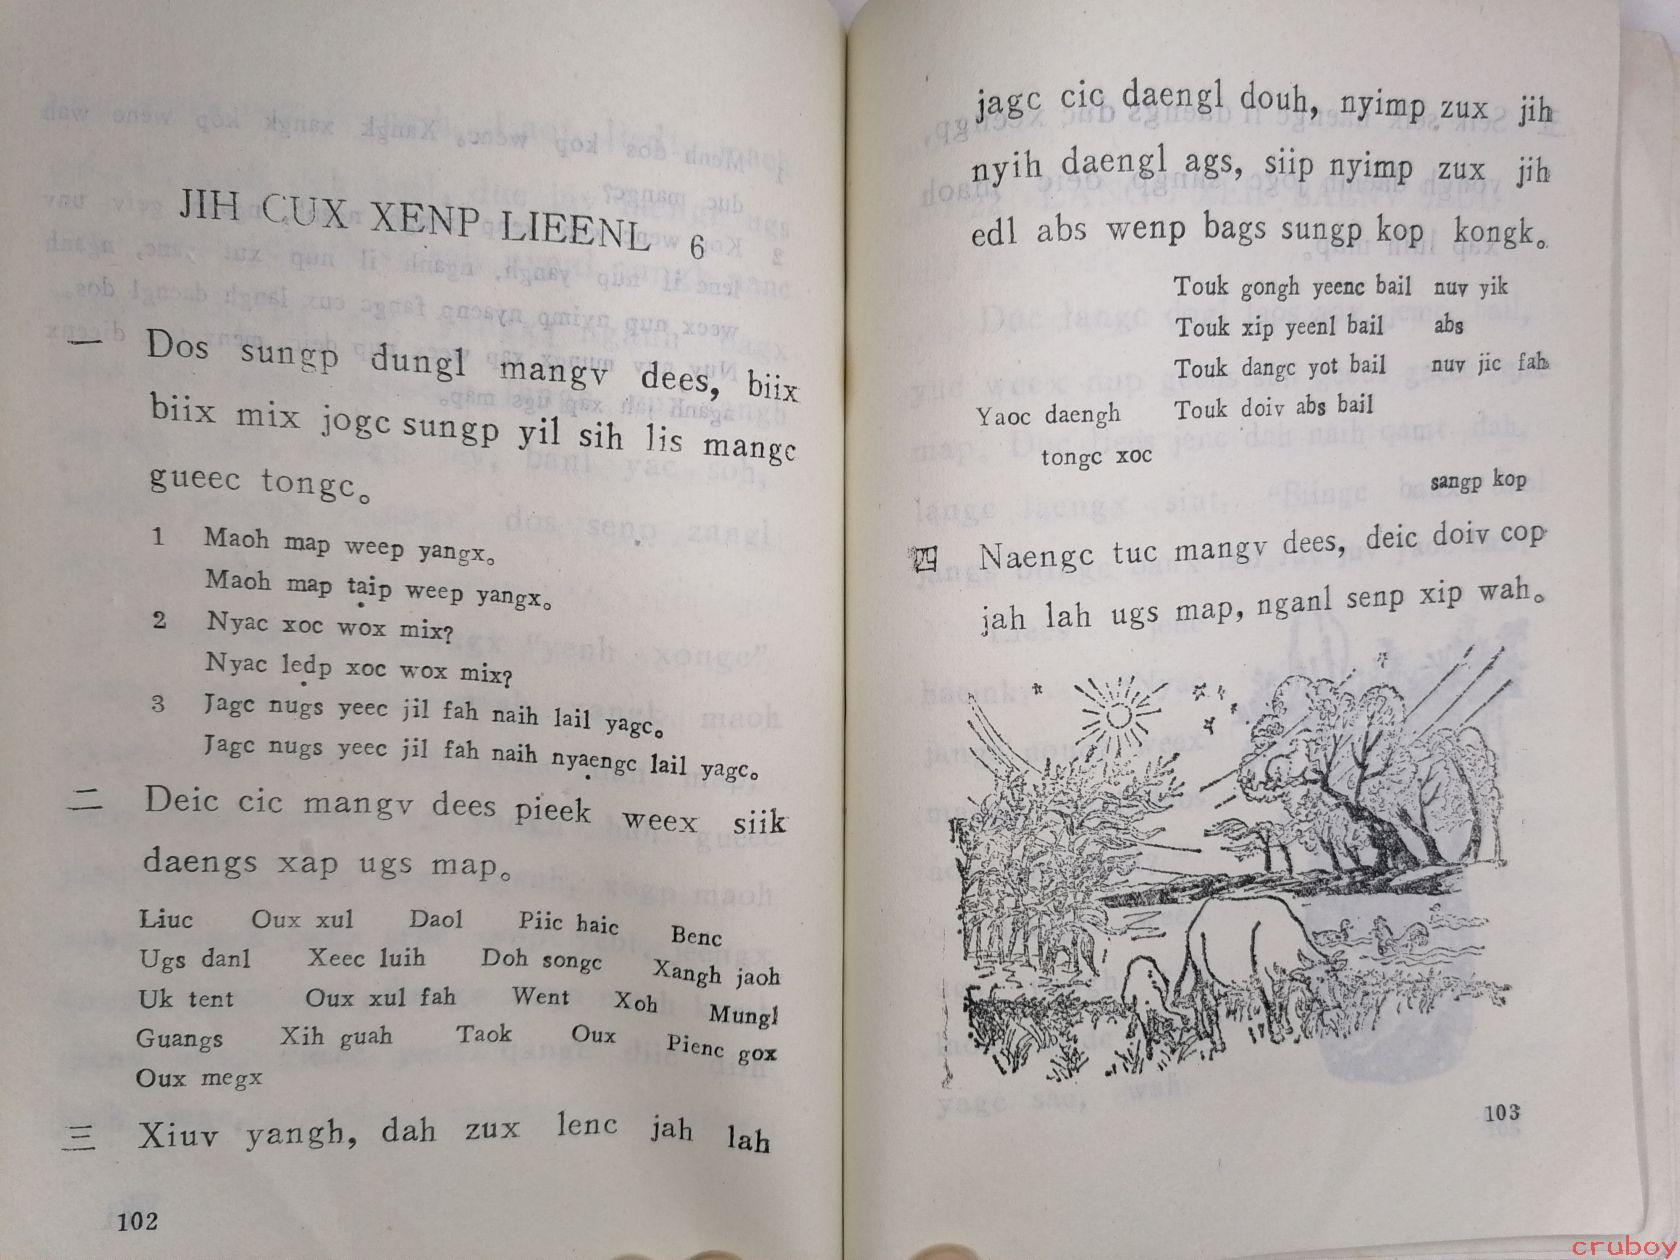 JIH CUX XENP LIEENL 6
一 Dos sungp dungl mangv dees, biix
biix mix jogc sungp yil sih lis mangc
gueec tongc。
1 Maoh map weep yangx。
Maoh map taip weep yangx。
2 Nyac xoc wox mix?
Nyac ledp xoc wox mix?
3 Jagc nugs yeec jil fah naih lail yagc。
Jagc nugs yeec jil fah naih nyaengc lail yagc。
二 Deic cic mangv dees pieek weex siik
daengs xap ugs map。
Liuc Oux xul Daol Piic haic Benc
Ugs danl Xeec luih Doh songc Xangh jaoh
Uk tent Oux xul fah Went Xoh Mungl
Guangs Xih guah Taok Oux Pienc gox
Oux megx
三 Xiuv yangh, dah zux lenc jah lah
102
jagc cic daengl douh, nyimp zux jih
nyih daengl ags, siip nyimp zux jih
edl abs wenp bags sungp kop kongk。
Touk gongh yeenc bail nuv yik
Touk xip yeenl bail abs
Touk dangc yot bail nuv jic fah
Yaoc daengh Touk doiv abs bail
tongc xoc
sangp kop
四 Naengc tuc mangv dees, deic doiv cop
jah lah ugs map, nganl senp xip wah。
103
cruboy